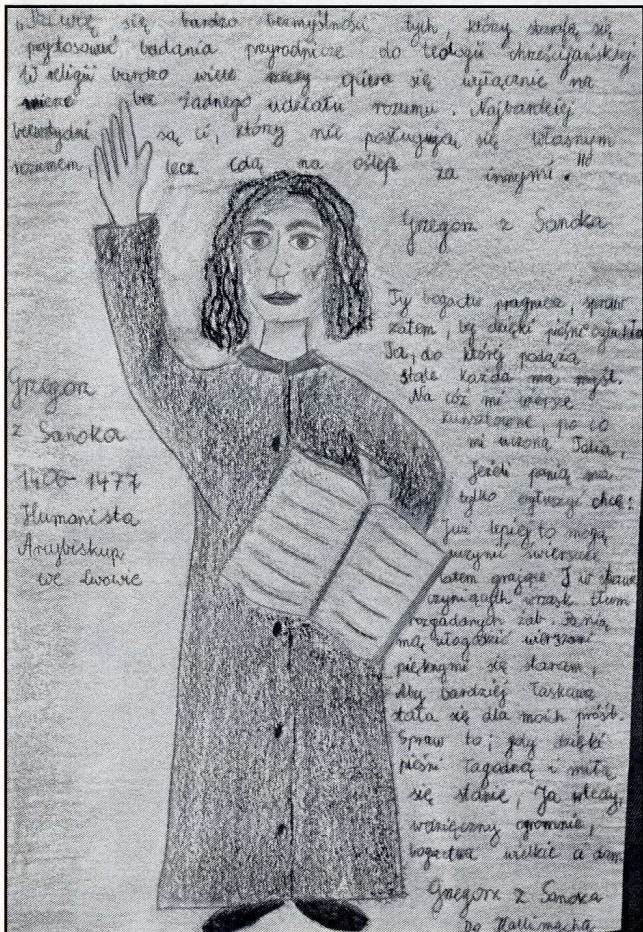 „Dziwię się bardzo bezmyślności tych, który starają się
przytosować badania przyrodnicze do teologii chrześcijańskiej
W religii bardzo wiele rzeczy opiera się wyłącznie na
wierze bez żadnego udziału rozumu. Najbardziej
bezwstydni są ci, który nie posługują się własnym
rozumem, lecz idą na oślep za innymi."
Grzegorz z Sanoka
Grzegorz
z Sanoka
1406-1477
Humanista
Arcybiskup
we Lwowie
Ty bogactw pragniesz, spraw
zatem, by dzięki pieśni czuła
Ta, do której podąża
stale każda ma myśl.
Na cóż mi wiersze
kunsztowne, po co
mi uczona Talia,
Jeżeli panią ma
tylko
chcę?
Już lepiej to mogą
uczynić świerszcze
latem grające I w stawie
czyniących wrzask tłum
rozgadanych żab. Panią
mą złagodzić wierszami
pięknymi się staram,
Aby bardziej łaskawą
stała się dla moich próśb.
Spraw to; gdy dzięki
pieśni łagodną i miłą
się stanie, Ja wtedy,
wdzięczny ogromnie,
bogactwa wielkie ci dam
Grzegorz z Sanoka
Do Kallimacha